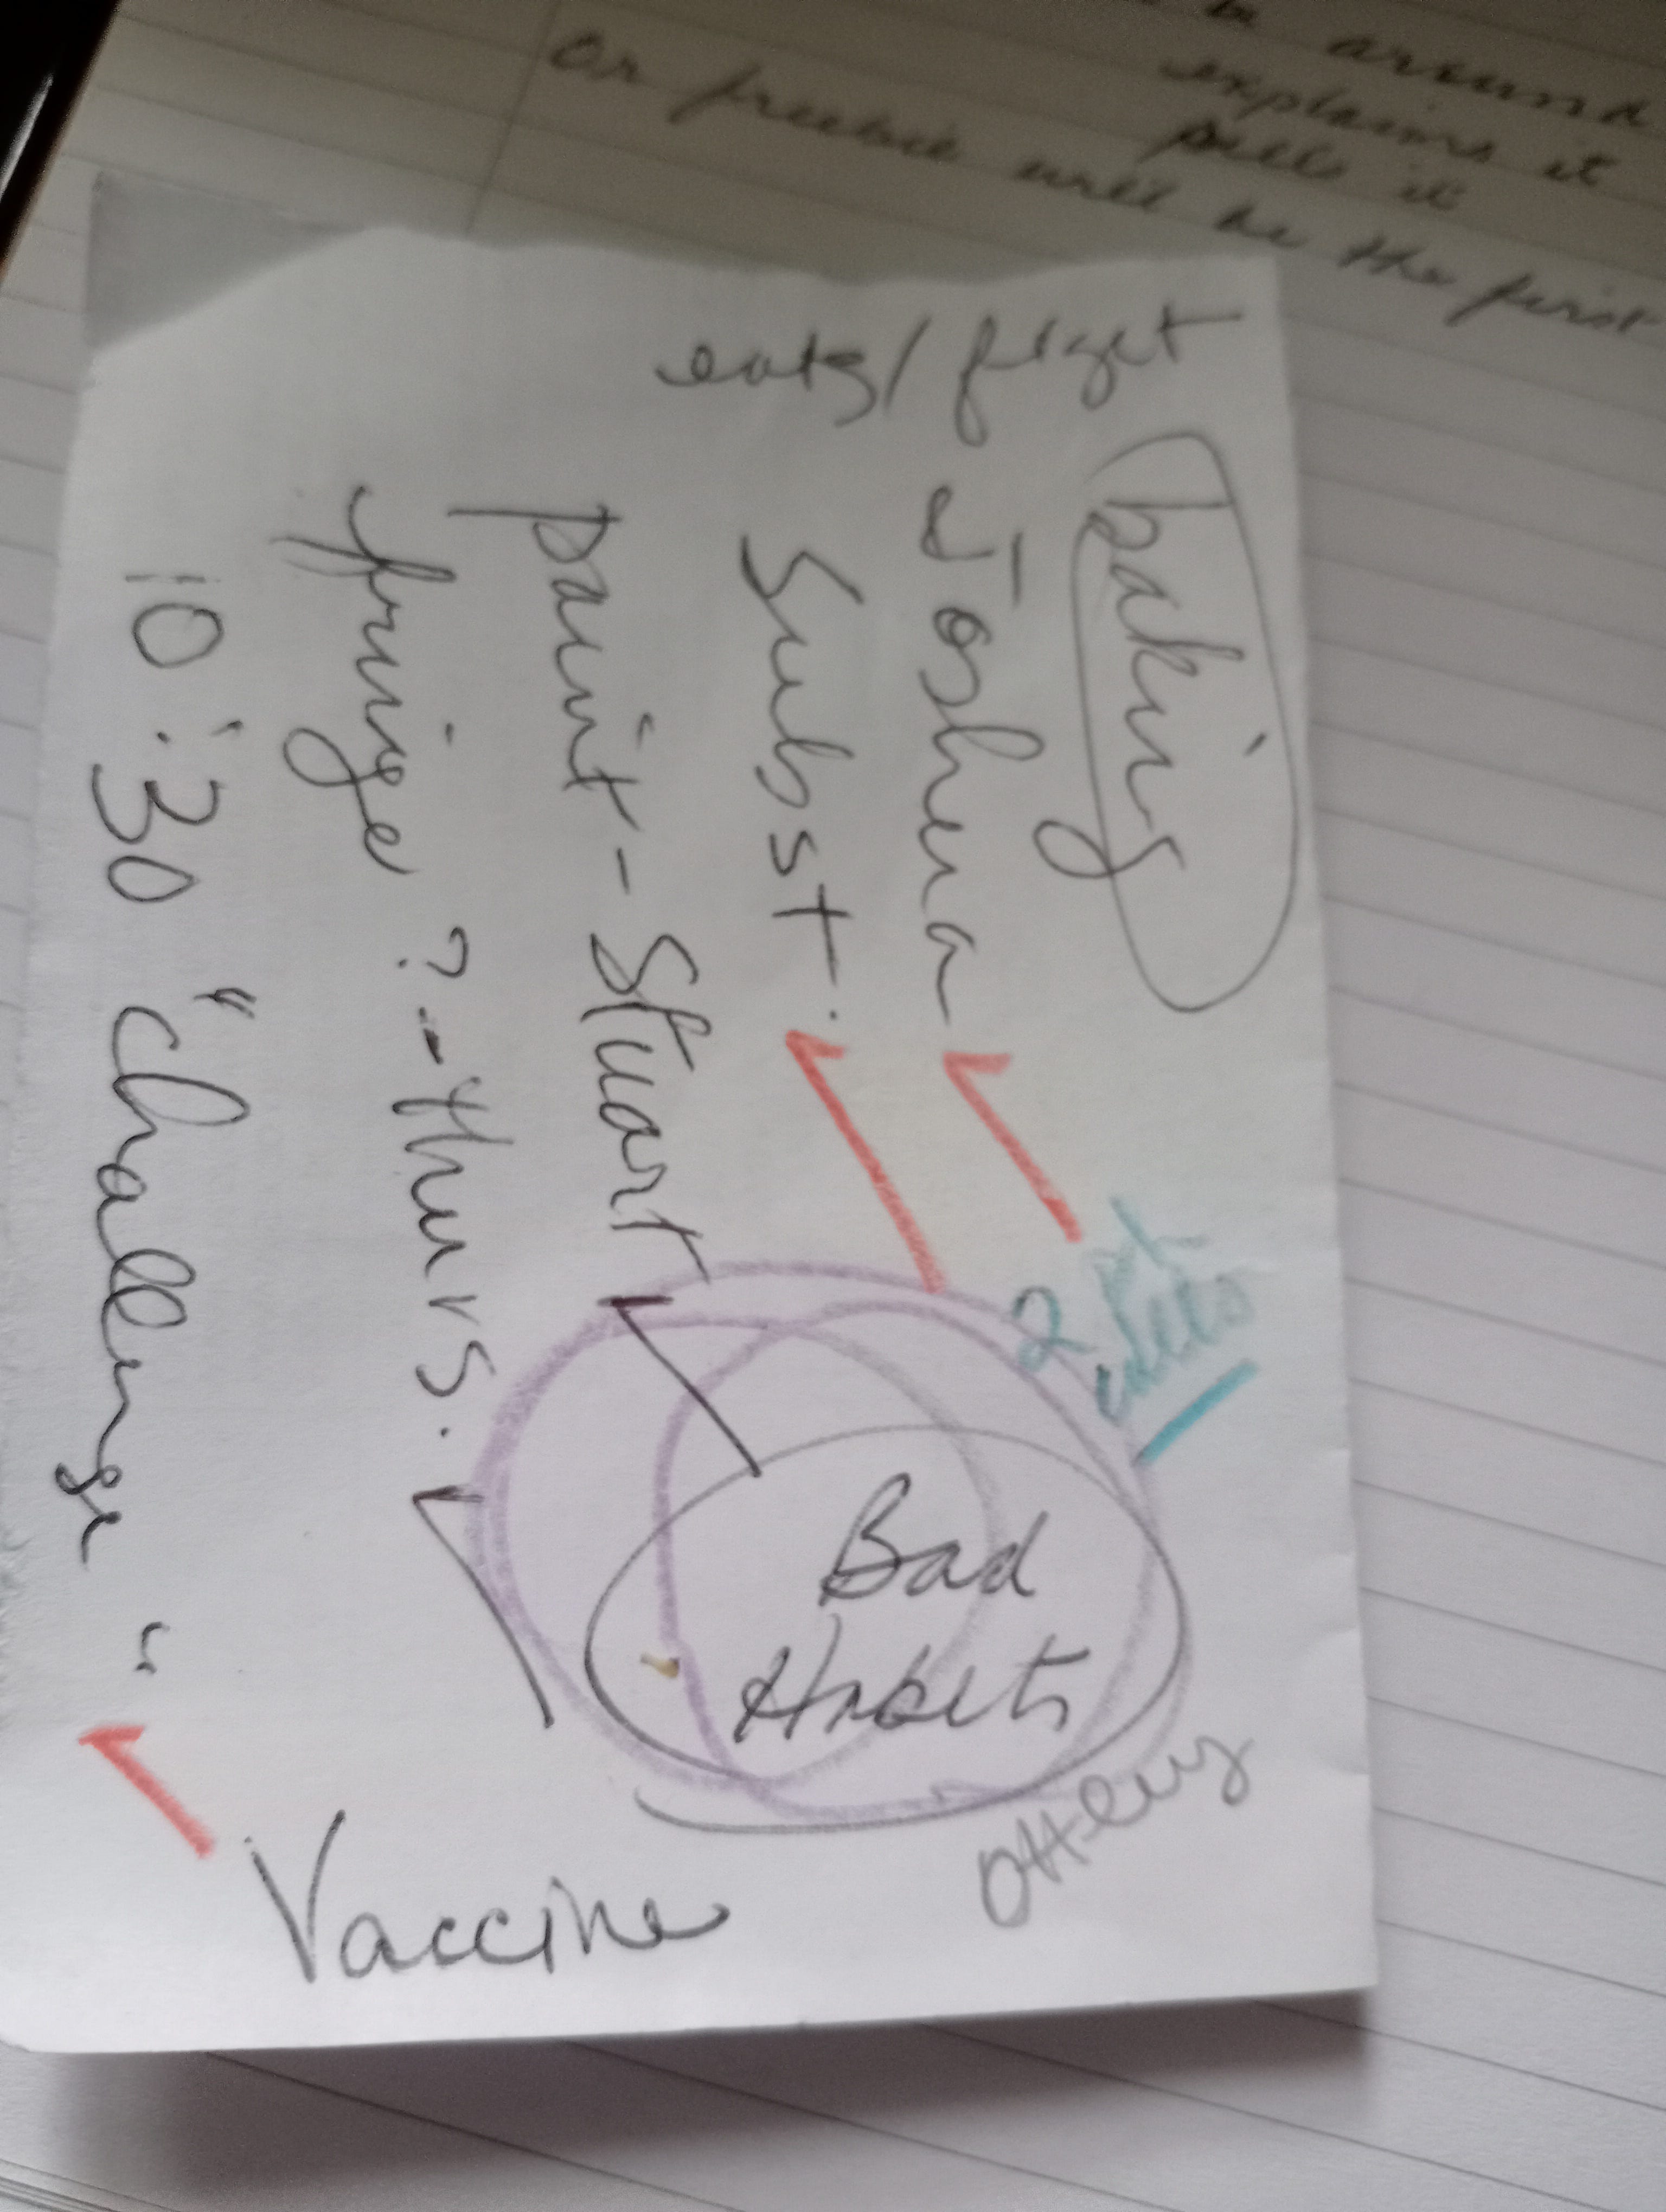 around
explains it
it
or freebie will be the first
eats/
baking
Joshua
Subst.
paint - Stuart
fringe ? - thurs.
10:30 "Challenge"
2
Bad
Habits
Vaccine